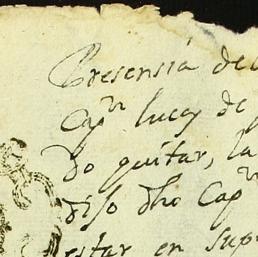 Presensia de
Cap.n lucas de
do quitar, la
diso dho Cap.n
estar en sup